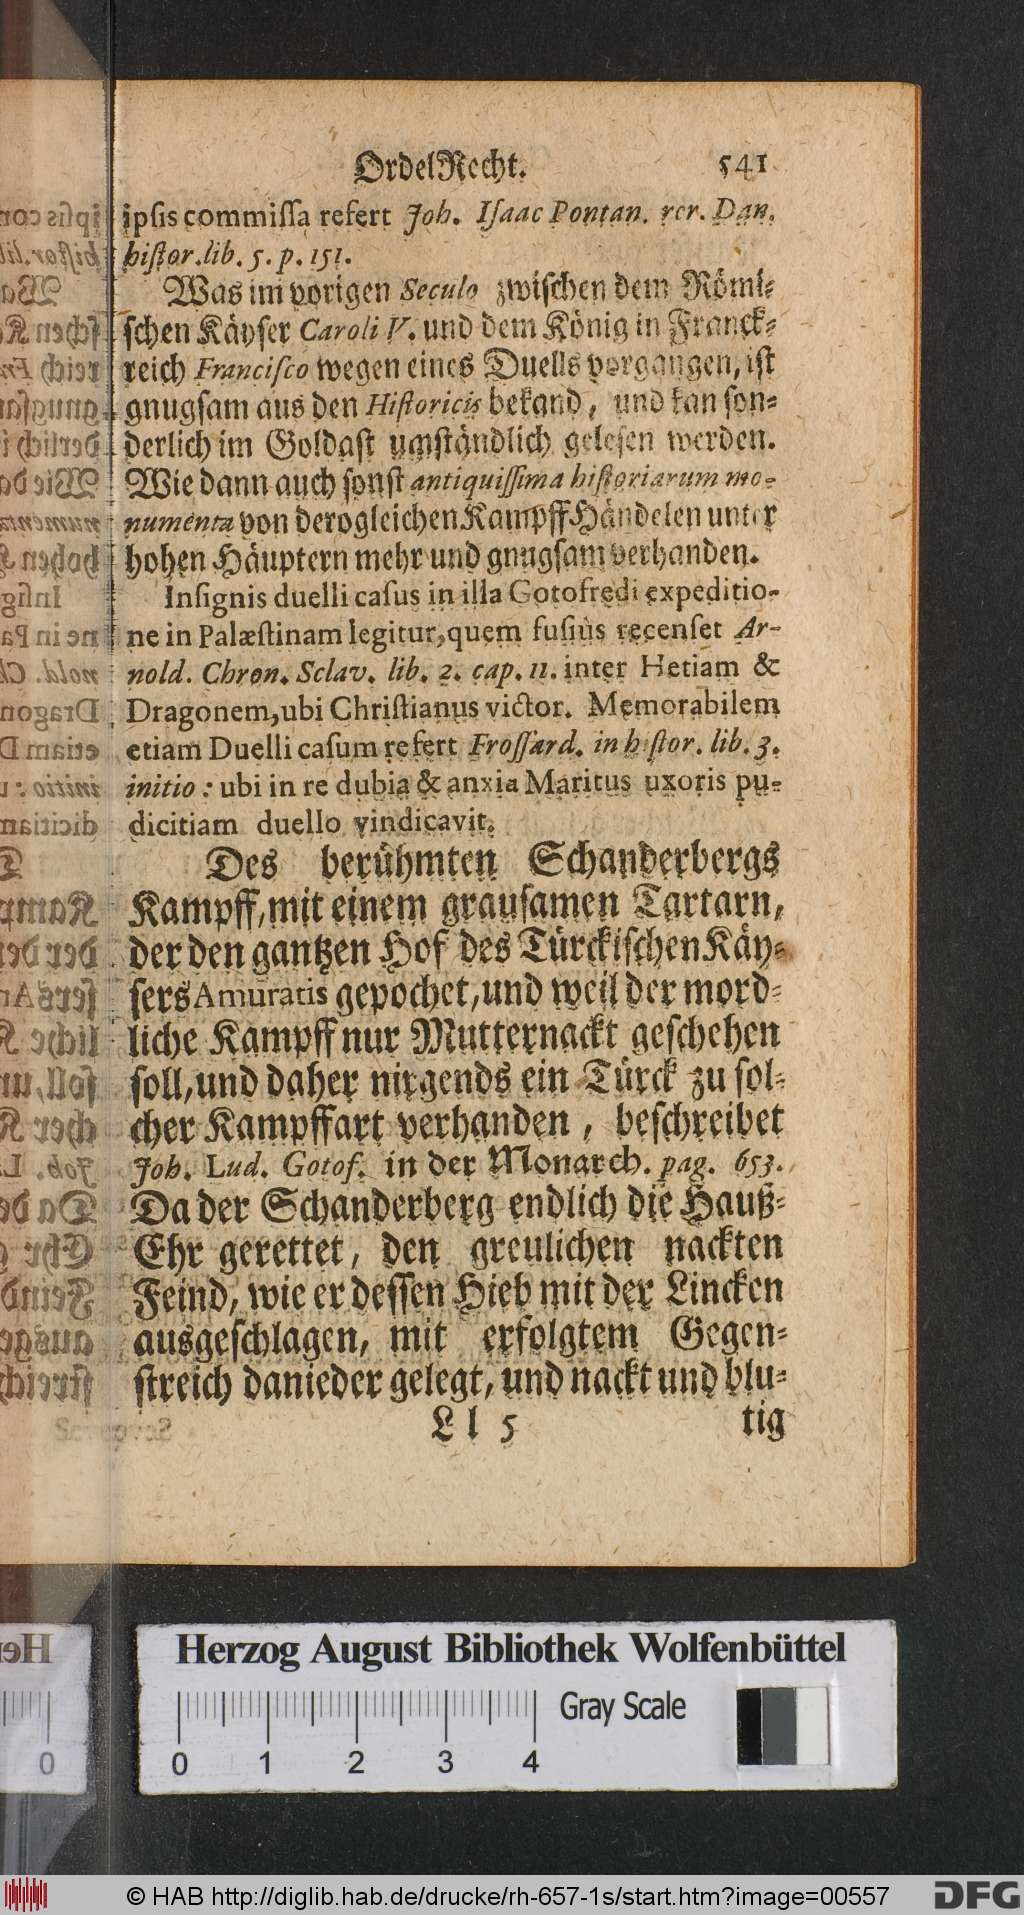 OrdelRecht. 541
ipsis commissa refert Joh. Isaac Pontan. rer. Dan.
histor. lib. 5. p. 151.
Was im vorigen Seculo zwischen dem Römi-
schen Käyser Caroli V. und dem König in Franck-
reich Francisco wegen eines Duells vorgangen, ist
gnugsam aus den Historicis bekand, und kan son-
derlich im Goldast umständlich gelesen werden.
Wie dann auch sonst antiquissima historiarum mo-
numenta von derogleichen Kampff Händelen unter
hohen Häuptern mehr und gnugsam verhanden.
Insignis duelli casus in illa Gotofredi expeditio-
ne in Palæstinam legitur, quem fusiùs recenset Ar-
nold. Chron. Sclav. lib. 2. cap. 11. inter Hetiam &
Dragonem, ubi Christianus victor. Memorabilem
etiam Duelli casum refert Frossard. in histor. lib. 3.
initio: ubi in re dubia & anxia Maritus uxoris pu-
dicitiam duello vindicavit.
Des berühmten Schanderbergs
Kampff, mit einem grausamen Tartarn,
der den gantzen Hof des Türckischen Käy-
sers Amuratis gepochet, und weil der mord-
liche Kampff nur Mutternackt geschehen
soll, und daher nirgends ein Türck zu sol-
cher Kampffart verhanden, beschreibet
Joh. Lud. Gotof. in der Monarch. pag. 653.
Da der Schanderberg endlich die Hauß-
Ehr gerettet, den greulichen nackten
Feind, wie er dessen Hieb mit der Lincken
ausgeschlagen, mit erfolgtem Gegen-
streich danieder gelegt, und nackt und blu-
Ll 5 tig
Herzog August Bibliothek Wolfenbüttel
Gray Scale
0 1 2 3 4
© HAB http://diglib.hab.de/drucke/rh-657-1s/start.htm?image=00557
DFG